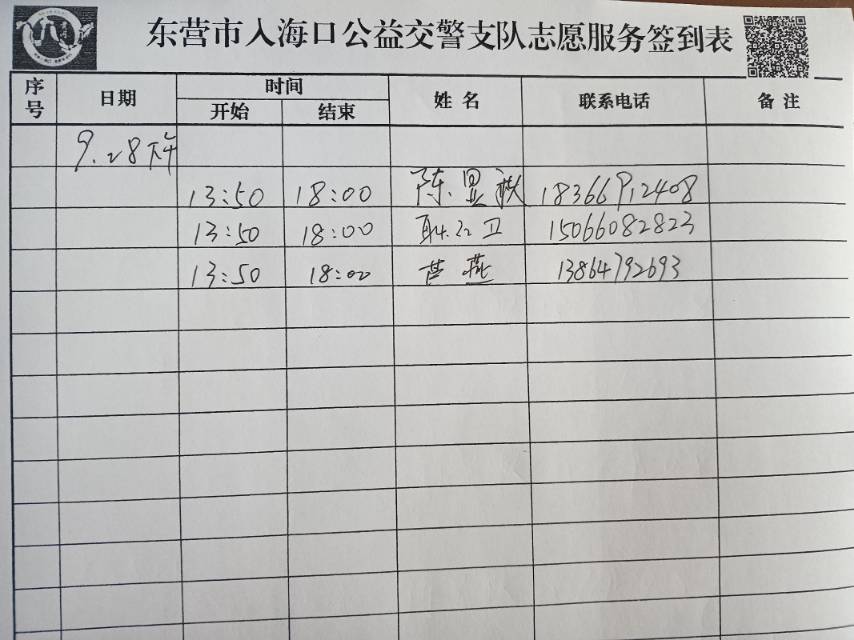 东营市入海口公益交警支队志愿服务签到表
序号 日期 时间 姓名 联系电话 备注
开始 结束
9.28下午
13:50 18:00 陈昱 18366912408
13:50 18:00 耿红卫 15066082823
13:50 18:00 燕 13864792693